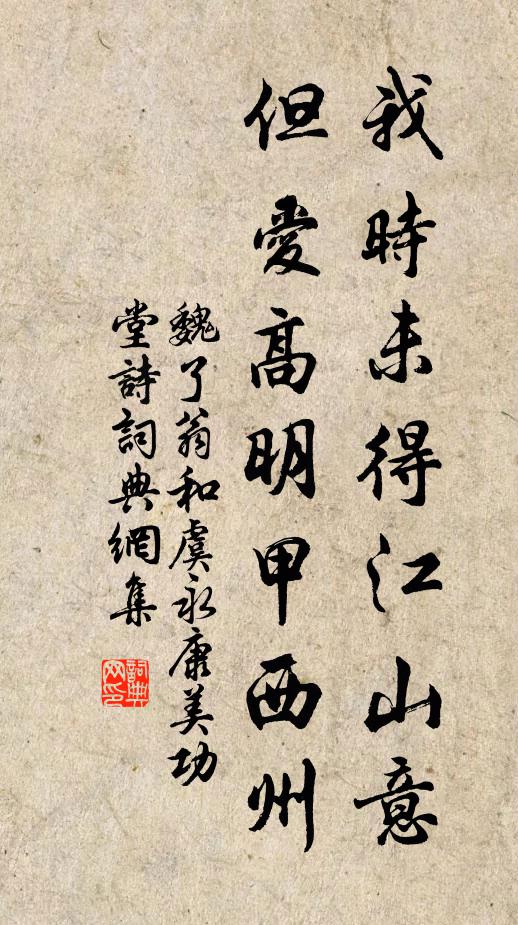 我時未得江山意
但愛高明甲西州
魏了翁和虞永康美功
堂詩詞典網集
詞典網印